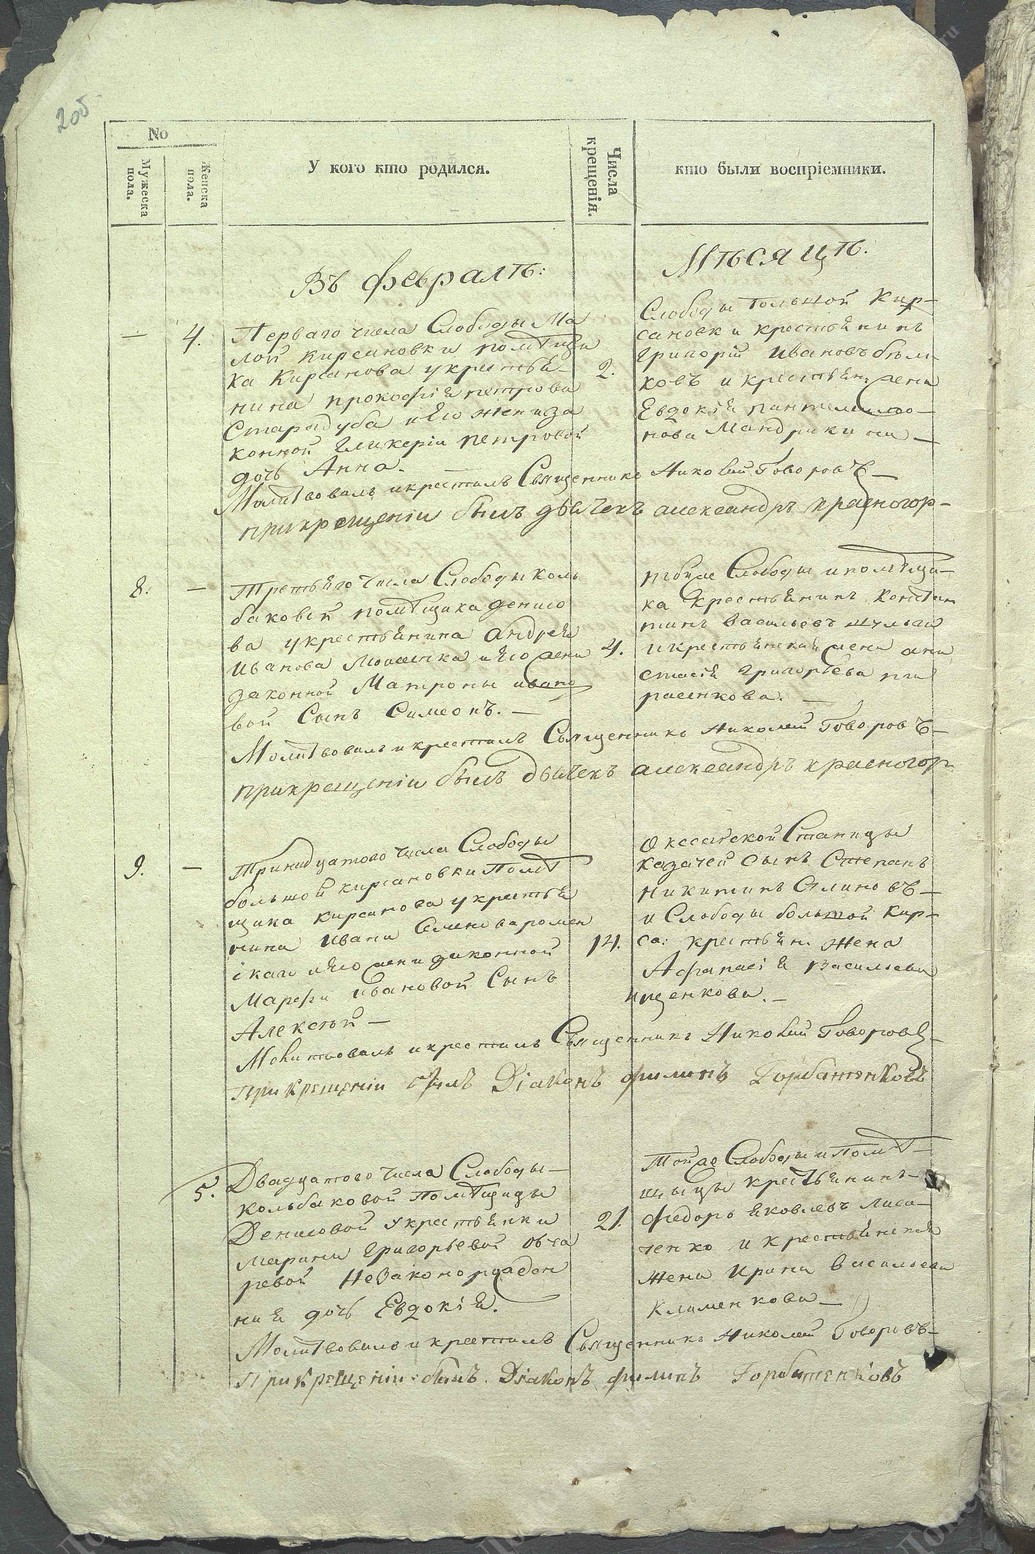 205
No
Мужеска пола.
Женска пола.
У кого кто родился.
Числа крещенія.
кто были воспріемники.
Въ февралѣ:
Мѣсяцѣ:
— 4.
Перваго числа Слободы Ма
лой Кирсановки помѣщи
ка Кирсанова у крестья-
нина Прокофія Петрова
Стародуба и его жены за
конной Гликеріи Петровой
дочь Анна. —
2.
Слободы Большой Кир-
сановки крестьянинъ
Григорій Ивановъ
ковъ и крестьян: жена
Евдокія Пантелимо-
нова Мандрыкина —
Молитвовалъ и крестилъ Священникъ Николай Говоровъ —
при крещеніи былъ дьячекъ Александръ Красногор-
8. —
Третьяго числа Слободы Коль
баковой помѣщика Денисо
ва у крестьянина Андрея
Иванова и его жены
законной Матроны Ивано
вой Сынъ Симеонъ. —
4.
тойже Слободы и помѣщи-
ка крестьянинъ Констан
тинъ Васильевъ
и крестьянская жена Ана
стасія Григорьева
расенкова. —
Молитвовалъ и крестилъ Священникъ Николай Говоровъ —
при крещеніи былъ дьячекъ Александръ Красногор
9. —
Тринадцатого числа Слободы
большой Кирсановки Помѣ
щика Кирсанова у крестья
нина Ивана Семенова
и его жены законной
Марфы Ивановой Сынъ
Алексѣй —
14.
Оксайской Станицы
казачей сынъ Степанъ
Никитинъ —
и Слободы большой Кир-
са: крестьян: жена
Афанасія Васильева
Ищенкова. —
Молитвовалъ и крестилъ Священникъ Николай Говоровъ —
При крещеніи былъ Діаконъ Филипъ Горбатенковъ
5.
Двадцатого числа Слободы —
Кольбаковой Помѣщицы
Денисовой у крестьянки
Марины Григорьевой Овча
ревой Незаконорожден
ная дочь Евдокія.
21.
Тойже Слободы и Помѣ —
щицы крестьянинъ
Федоръ Яковлевъ Лиса-
ченко и крестьянская
жена Ирина Васильева
Клименкова —
Молитвовалъ и крестилъ Священникъ Николай Говоровъ —
При крещеніи былъ Діаконъ Филипъ Горбатенковъ